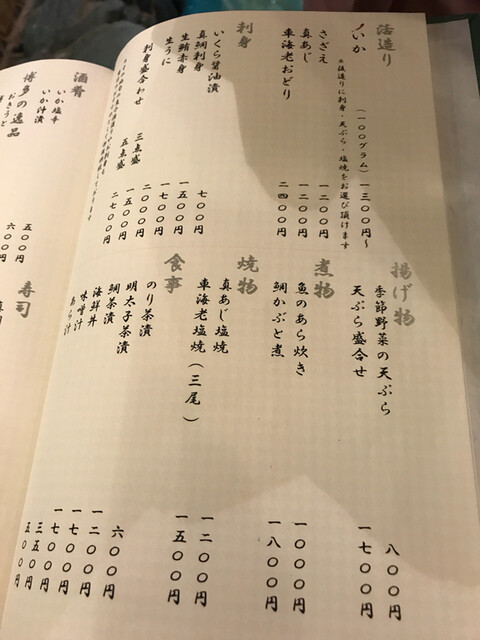 活造り
いか (一〇〇グラム)一三〇〇円〜
※活造りに刺身・天ぷら・塩焼をお選び頂けます
さざえ 一二〇〇円
真あじ 一二〇〇円
車海老おどり 二四〇〇円
刺身
いくら醤油漬 七〇〇円
真鯛刺身 一五〇〇円
生鮪赤身 一七〇〇円
生うに 二〇〇〇円
刺身盛合わせ 三点盛 一五〇〇円
五点盛 二七〇〇円
揚げ物
季節野菜の天ぷら 八〇〇円
天ぷら盛合せ 一七〇〇円
煮物
魚のあら炊き 一〇〇〇円
鯛かぶと煮 一八〇〇円
焼物
真あじ塩焼 一二〇〇円
車海老塩焼(三尾) 一五〇〇円
食事
のり茶漬 六〇〇円
明太子茶漬 一二〇〇円
鯛茶漬 一七〇〇円
海鮮丼 一七〇〇円
味噌汁 三五〇円
あら汁 五〇〇円
酒肴
いか塩辛 五〇〇円
いか汁漬 六〇〇円
博多の逸品
おきうと
寿司